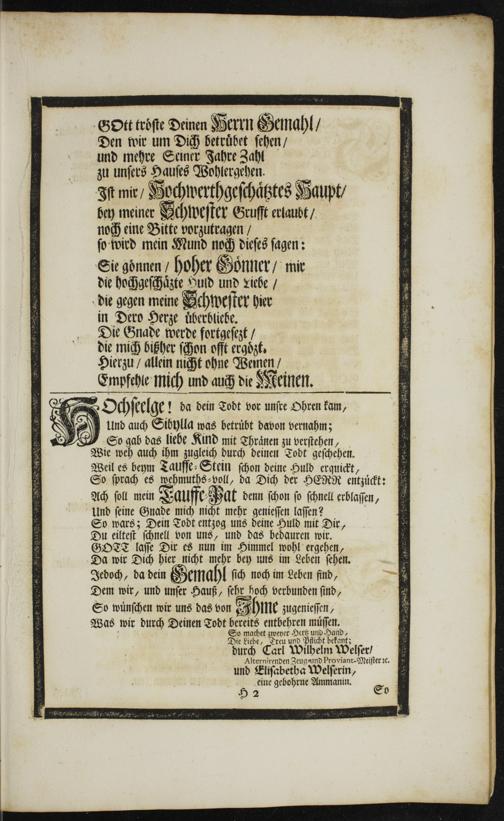 GOtt tröste Deinen Herrn Gemahl/
Den wir um Dich betrübet sehen/
und mehre Seiner Jahre Zahl
zu unsers Hauses Wohlergehen.
Ist mir/ Hochwerthgeschätztes Haupt/
bey meiner Schwester Grufft erlaubt/
noch eine Bitte vorzutragen/
so wird mein Mund noch dieses sagen:
Sie gönnen/ hoher Gönner/ mir
die hochgeschäzte Huld und Liebe/
die gegen meine Schwester hier
in Dero Herze überbliebe.
Die Gnade werde fortgesezt/
die mich bißher schon offt ergözt.
Hierzu/ allein nicht ohne Weinen/
Empfehle mich und auch die Meinen.
HOchseelge! da dein Todt vor unsre Ohren kam,
Und auch Sibylla was betrübt davon vernahm;
So gab das liebe Kind mit Thränen zu verstehen,
Wie weh auch ihm zugleich durch deinen Todt geschehen.
Weil es beym Tauffe-Stein schon deine Huld erquickt,
So sprach es wehmuths-voll, da Dich der HERR entzückt:
Ach soll mein Tauffe-Pat denn schon so schnell erblassen,
Und seine Gnade mich nicht mehr geniessen lassen?
So wars; Dein Todt entzog uns deine Huld mit Dir,
Du eiltest schnell von uns, und das bedauren wir.
GOTT lasse Dir es nun im Himmel wohl ergehen,
Da wir Dich hier nicht mehr bey uns im Leben sehen.
Jedoch, da dein Gemahl sich noch im Leben find,
Dem wir, und unser Hauß, sehr hoch verbunden sind,
So wünschen wir uns das von Ihme zugeniessen,
Was wir durch Deinen Todt bereits entbehren müssen.
So machet zweyer Hertz und Hand,
Die Liebe, Treu und Pflicht bekant;
durch Carl Wilhelm Welser/
Alternirenden Zeug- und Proviant-Meister ꝛc.
und Elisabetha Welserin,
eine gebohrne Ammanin.
H 2
So